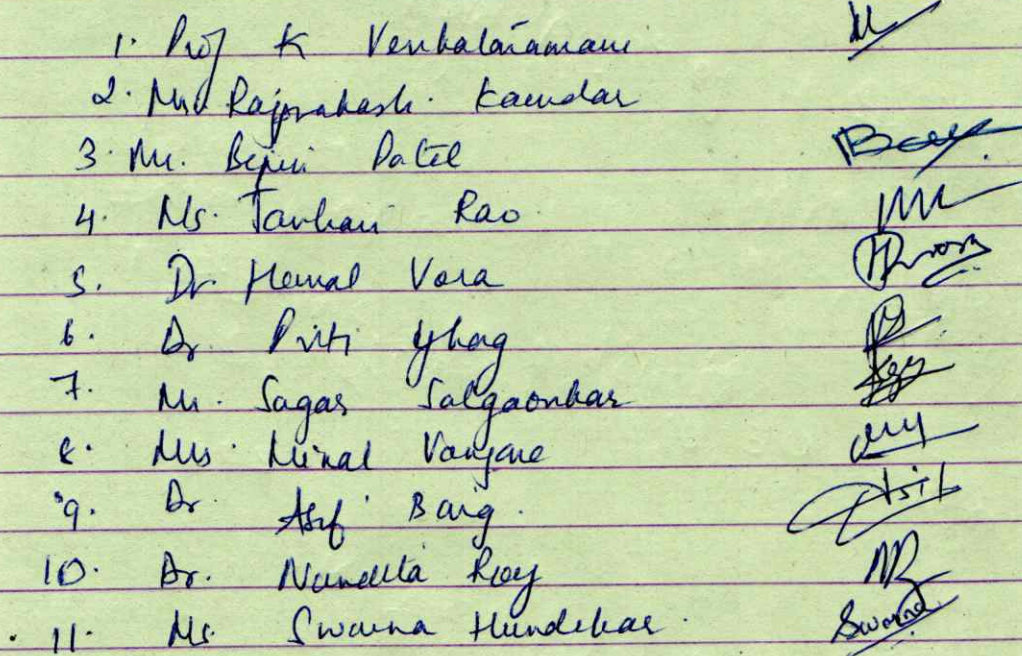 1. Prof K Venkataramani
2. Mr. Rajprakash Kamdar
3. Mr. Bepin Patel
4. Ms. Rao
5. Dr. Hemal Vora
6. Dr. Priti Ghag
7. Mr. Sagar Salgaonkar
8. Mrs. Minal Vanjare
9. Dr. Asif Baig.
10. Dr. Nandita Roy
11. Ms. Swarna Hundekar. Swarna